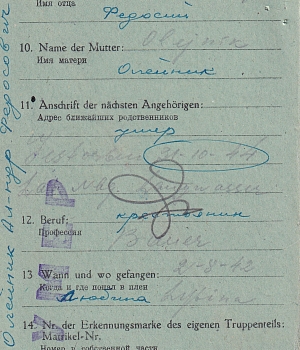 Имя отца
Федосий
10. Name der Mutter:
Имя матери
Олейник
11. Anschrift der nächsten Angehörigen:
Адрес ближайших родственников
умер
-10-44
12. Beruf:
Профессия
крестьянин
Bauer
13 Wann und wo gefangen:
Когда и где попал в плен
21-8-42
14. Nr. der Erkennungsmarke des eigenen Truppenteils:
Matrikel-Nr.
Номер в собственной части
Олейник Ал-ндр Федосович